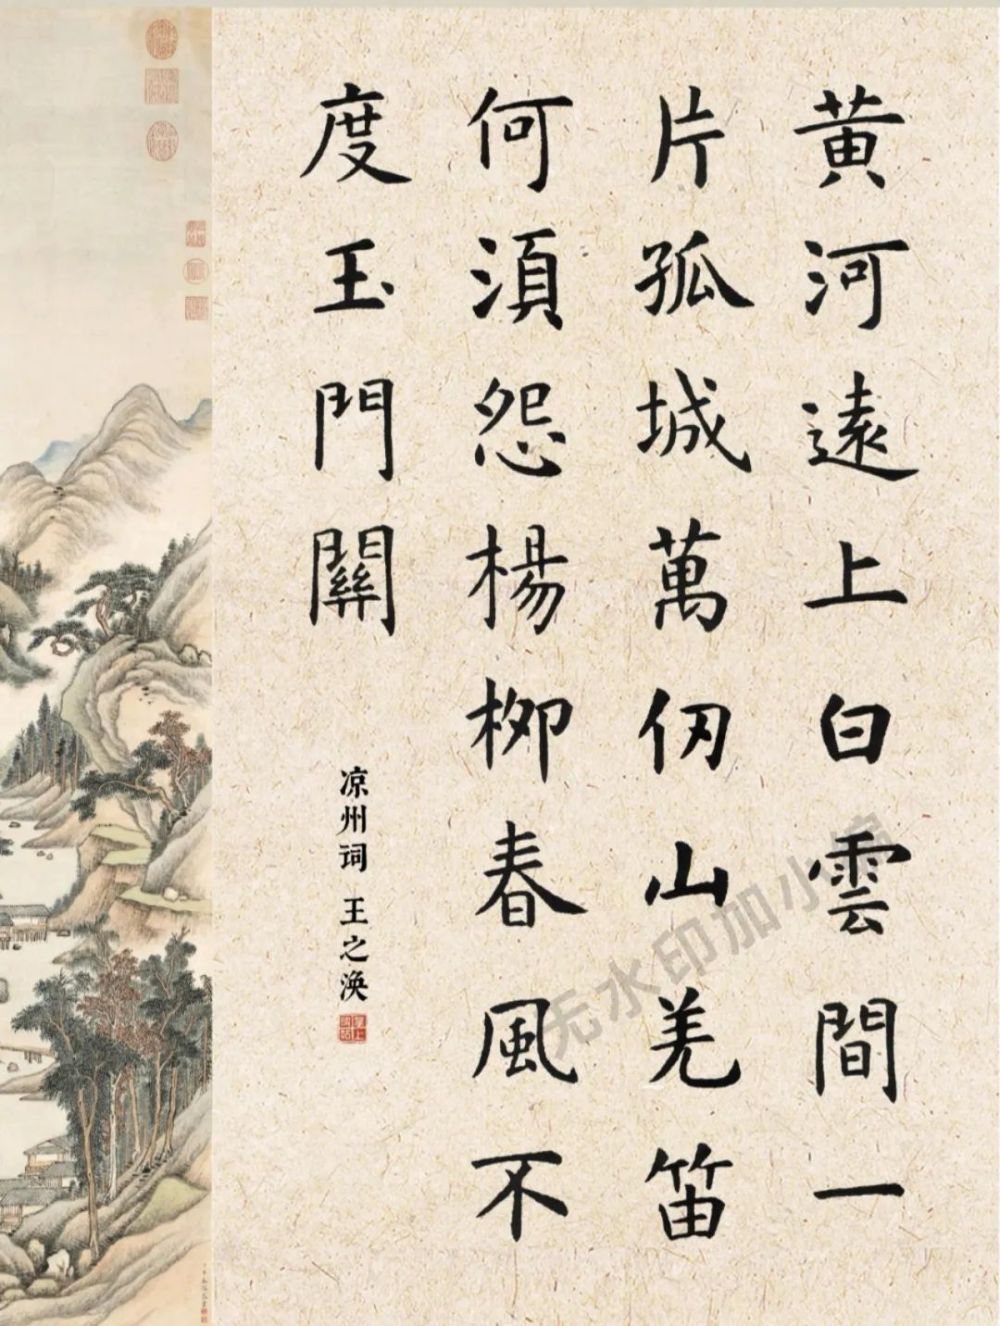 黃河遠上白雲間一
片孤城萬仞山羌笛
何須怨楊柳春風不
度玉門關
凉州词 王之涣
无水印加小